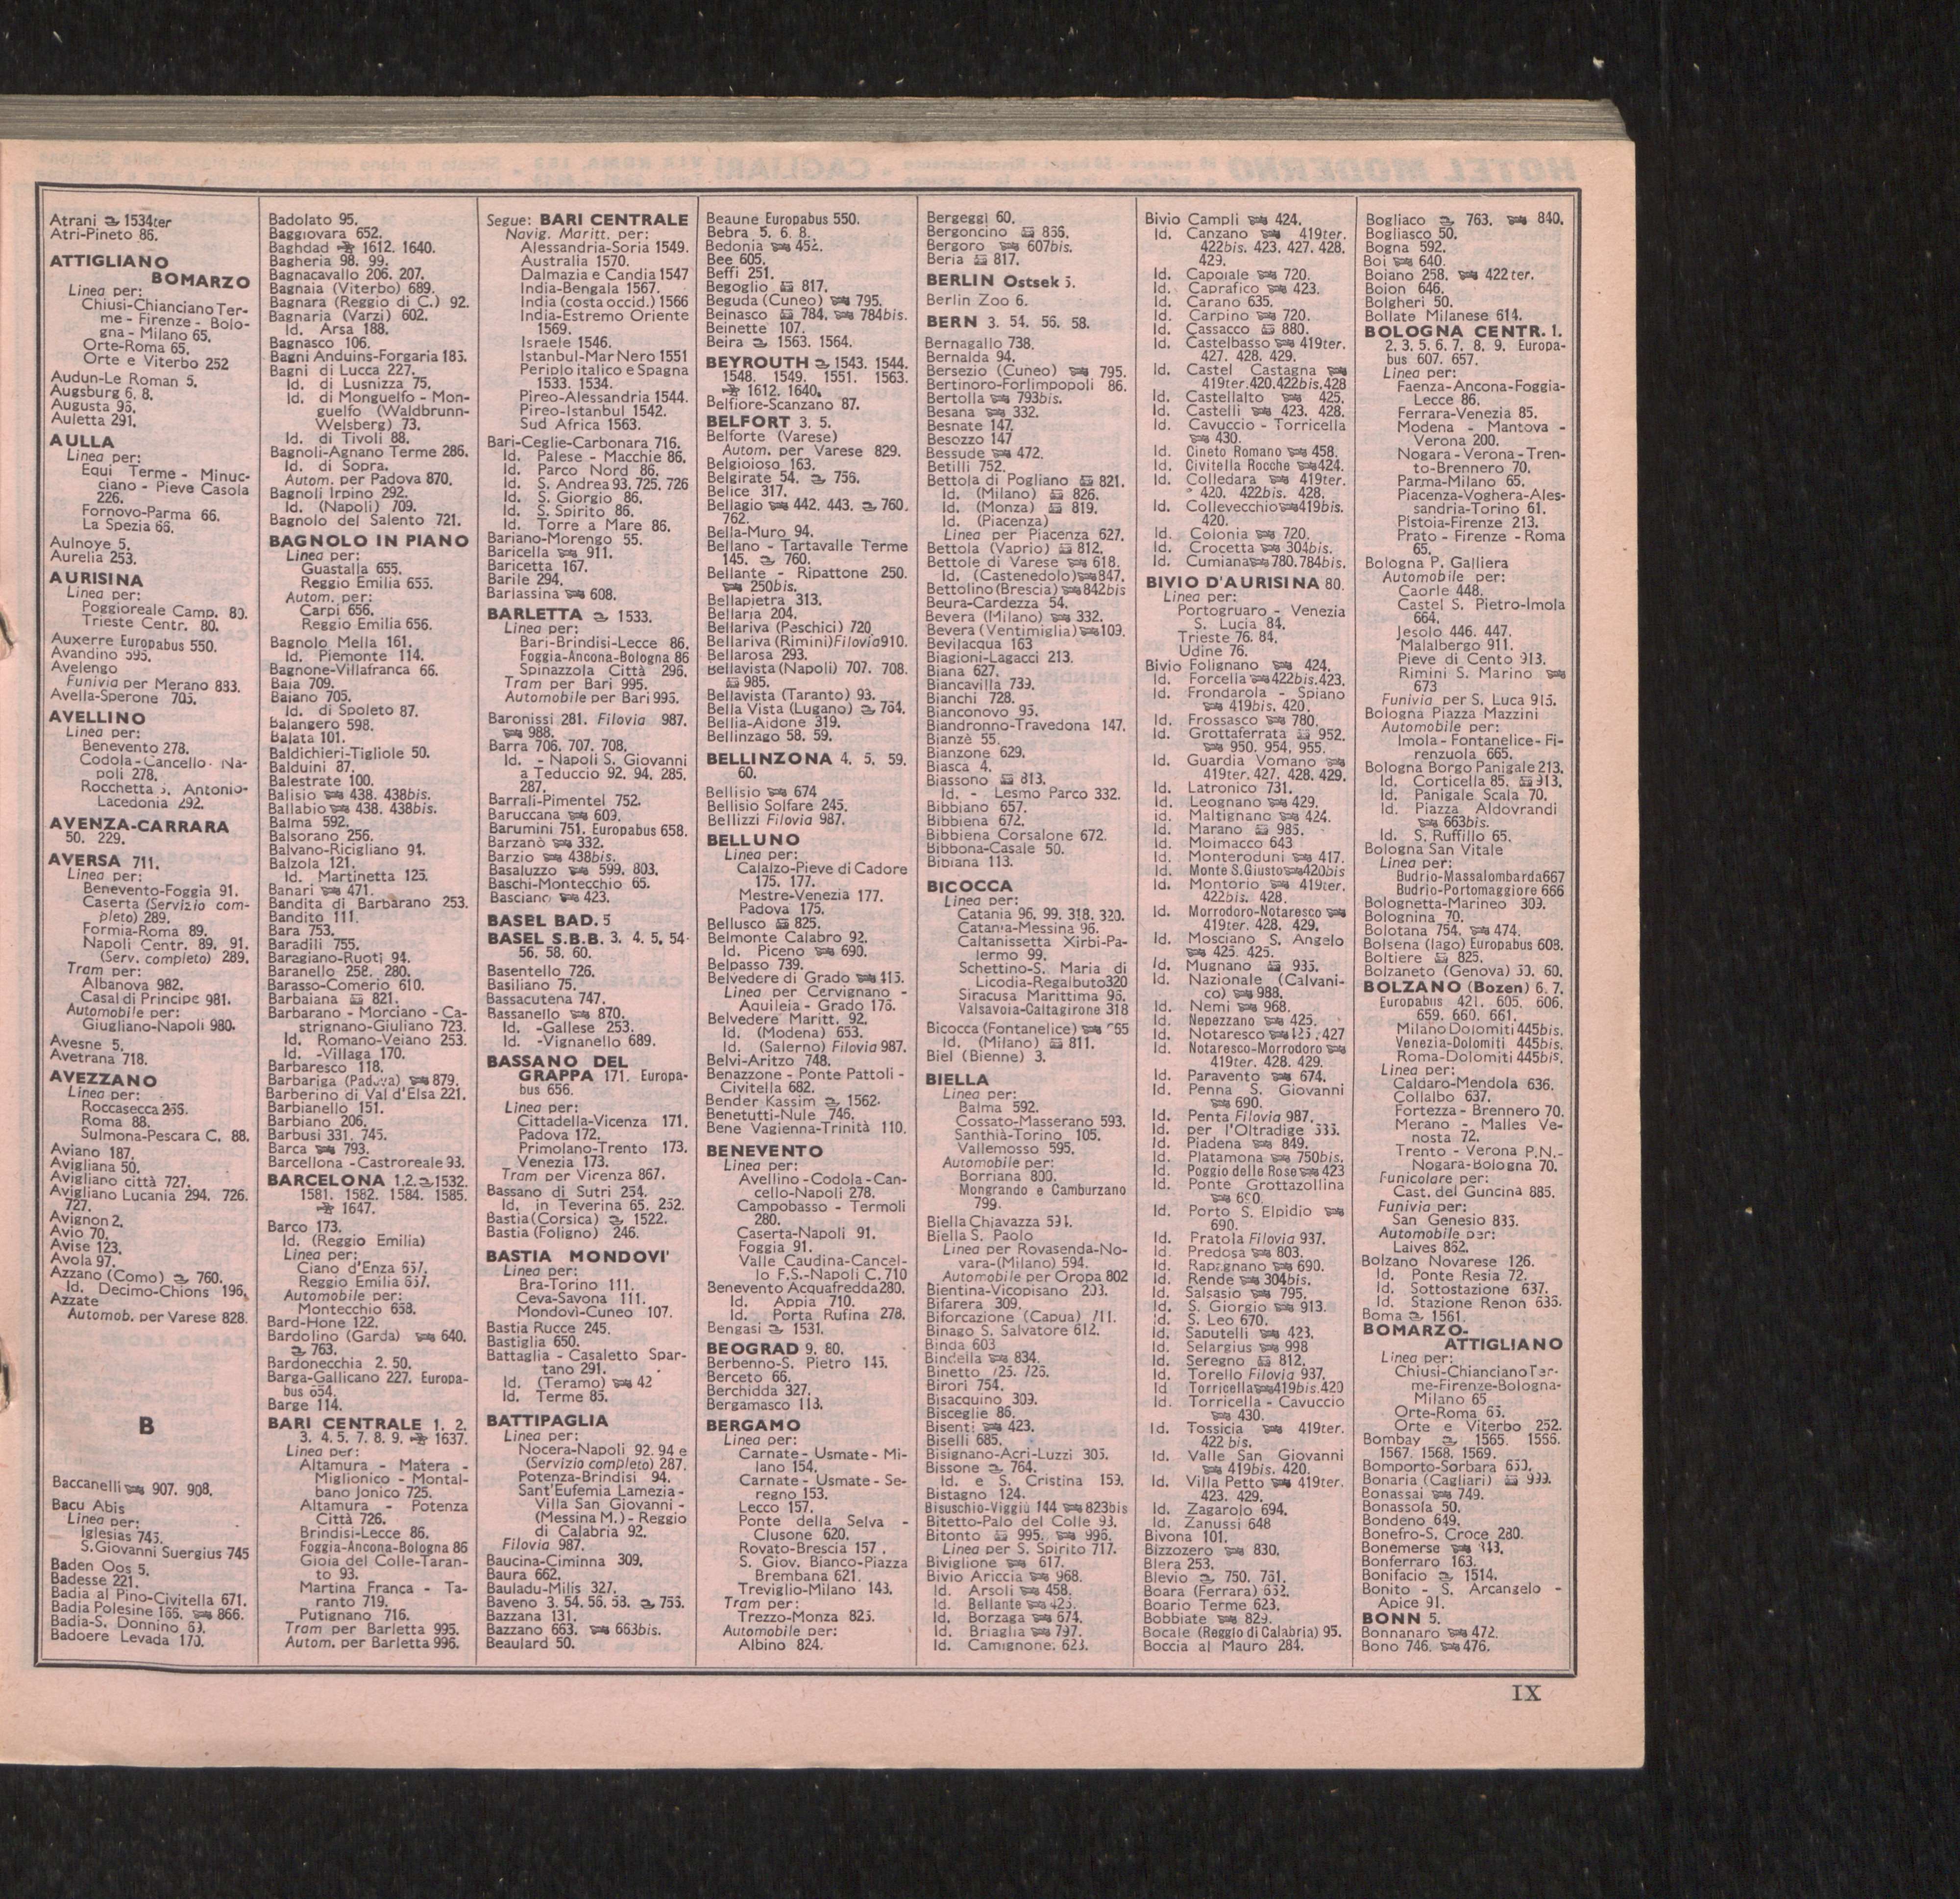 Atrani 1534ter
Atri-Pineto 86.
ATTIGLIANO
BOMARZO
Linea per:
Chiusi-Chianciano Ter-
me - Firenze - Bolo-
gna - Milano 65.
Orte-Roma 65.
Orte e Viterbo 252
Audun-Le Roman 5.
Augsburg 6. 8.
Augusta 95.
Auletta 291.
AULLA
Linea per:
Equi Terme - Minuc-
ciano - Pieve Casola
226.
Fornovo-Parma 66.
La Spezia 66.
Aulnoye 5.
Aurelia 253.
AURISINA
Linea per:
Poggioreale Camp. 80.
Trieste Centr. 80.
Auxerre Europabus 550.
Avandino 595.
Avelengo
Funivia per Merano 833.
Avella-Sperone 705.
AVELLINO
Linea per:
Benevento 278.
Codola-Cancello- Na-
poli 278.
Rocchetta S. Antonio-
Lacedonia 292.
AVENZA-CARRARA
50. 229.
AVERSA 711.
Linea per:
Benevento-Foggia 91.
Caserta (Servizio com-
pleto) 289.
Formia-Roma 89.
Napoli Centr. 89. 91.
(Serv. completo) 289.
Tram per:
Albanova 982.
Casal di Principe 981.
Automobile per:
Giugliano-Napoli 980.
Avesne 5.
Avetrana 718.
AVEZZANO
Linea per:
Roccasecca 256.
Roma 88.
Sulmona-Pescara C. 88.
Aviano 187.
Avigliana 50.
Avigliano città 727.
Avigliano Lucania 294. 726.
727.
Avignon 2.
Avio 70.
Avise 123.
Avola 97.
Azzano (Como) 760.
Id. Decimo-Chions 196.
Azzate
Automob. per Varese 828.
B
Baccanelli 907. 908.
Bacu Abis
Linea per:
Iglesias 745.
S. Giovanni Suergius 745
Baden Oos 5.
Badesse 221.
Badia al Pino-Civitella 671.
Badia Polesine 166. 866.
Badia-S. Donnino 69.
Badoere Levada 170.
Badolato 95.
Baggiovara 652.
Baghdad 1612. 1640.
Bagheria 98. 99.
Bagnacavallo 206. 207.
Bagnaia (Viterbo) 689.
Bagnara (Reggio di C.) 92.
Bagnaria (Varzi) 602.
Id. Arsa 188.
Bagnasco 106.
Bagni Anduins-Forgaria 185.
Bagni di Lucca 227.
Id. di Lusnizza 75.
Id. di Monguelfo - Mon-
guelfo (Waldbrunn-
Welsberg) 73.
Id. di Tivoli 88.
Bagnoli-Agnano Terme 286.
Id. di Sopra.
Autom. per Padova 870.
Bagnoli Irpino 292.
Id. (Napoli) 709.
Bagnolo del Salento 721.
BAGNOLO IN PIANO
Linea per:
Guastalla 655.
Reggio Emilia 655.
Autom. per:
Carpi 656.
Reggio Emilia 656.
Bagnolo Mella 161.
Id. Piemonte 114.
Bagnone-Villafranca 66.
Baia 709.
Baiano 705.
Id. di Spoleto 87.
Balangero 598.
Balata 101.
Baldichieri-Tigliole 50.
Balduini 87.
Balestrate 100.
Balisio 438. 438bis.
Ballabio 438. 438bis.
Balma 592.
Balsorano 256.
Balvano-Ricigliano 94.
Balzola 121.
Id. Martinetta 125.
Banari 471.
Bandita di Barbarano 253.
Bandito 111.
Bara 753.
Baradili 755.
Baragiano-Ruoti 94.
Baranello 258. 280.
Barasso-Comerio 610.
Barbaiana 821.
Barbarano - Morciano - Ca-
strignano-Giuliano 723.
Id. Romano-Veiano 253.
Id. -Villaga 170.
Barbaresco 118.
Barbariga (Padova) 879.
Barberino di Val d'Elsa 221.
Barbianello 151.
Barbiano 206.
Barbusi 331. 745.
Barca 793.
Barcellona - Castroreale 93.
BARCELONA 1.2. 1532.
1581. 1582. 1584. 1585.
1647.
Barco 173.
Id. (Reggio Emilia)
Linea per:
Ciano d'Enza 657.
Reggio Emilia 657.
Automobile per:
Montecchio 658.
Bard-Hone 122.
Bardolino (Garda) 640.
763.
Bardonecchia 2. 50.
Barga-Gallicano 227. Europa-
bus 654.
Barge 114.
BARI CENTRALE 1. 2.
3. 4. 5. 7. 8. 9. 1637.
Linea per:
Altamura - Matera -
Miglionico - Montal-
bano Jonico 725.
Altamura - Potenza
Città 726.
Brindisi-Lecce 86.
Foggia-Ancona-Bologna 86
Gioia del Colle-Taran-
to 93.
Martina Franca - Ta-
ranto 719.
Putignano 716.
Tram per Barletta 995.
Autom. per Barletta 996.
Segue: BARI CENTRALE
Navig. Maritt. per:
Alessandria-Soria 1549.
Australia 1570.
Dalmazia e Candia 1547
India-Bengala 1567.
India (costa occid.) 1566
India-Estremo Oriente
1569.
Israele 1546.
Istanbul-Mar Nero 1551
Periplo italico e Spagna
1533. 1534.
Pireo-Alessandria 1544.
Pireo-Istanbul 1542.
Sud Africa 1563.
Bari-Ceglie-Carbonara 716.
Id. Palese - Macchie 86.
Id. Parco Nord 86.
Id. S. Andrea 93. 725. 726
Id. S. Giorgio 86.
Id. S. Spirito 86.
Id. Torre a Mare 86.
Bariano-Morengo 55.
Baricella 911.
Baricetta 167.
Barile 294.
Barlassina 608.
BARLETTA 1533.
Linea per:
Bari-Brindisi-Lecce 86.
Foggia-Ancona-Bologna 86
Spinazzola Città 296.
Tram per Bari 995.
Automobile per Bari 996.
Baronissi 281. Filovia 987.
988.
Barra 706. 707. 708.
Id. - Napoli S. Giovanni
a Teduccio 92. 94. 285.
287.
Barrali-Pimentel 752.
Baruccana 609.
Barumini 751. Europabus 658.
Barzanò 332.
Barzio 438bis.
Basaluzzo 599. 803.
Baschi-Montecchio 65.
Basciano 423.
BASEL BAD. 5
BASEL S.B.B. 3. 4. 5. 54-
56. 58. 60.
Basentello 726.
Basiliano 75.
Bassacutena 747.
Bassanello 870.
Id. -Gallese 253.
Id. -Vignanello 689.
BASSANO DEL
GRAPPA 171. Europa-
bus 656.
Linea per:
Cittadella-Vicenza 171.
Padova 172.
Primolano-Trento 173.
Venezia 173.
Tram per Virenza 867.
Bassano di Sutri 254.
Id. in Teverina 65. 252.
Bastia (Corsica) 1522.
Bastia (Foligno) 246.
BASTIA MONDOVI'
Linea per:
Bra-Torino 111.
Ceva-Savona 111.
Mondovì-Cuneo 107.
Bastia Rucce 245.
Bastiglia 650.
Battaglia - Casaletto Spar-
tano 291.
Id. (Teramo) 42
Id. Terme 85.
BATTIPAGLIA
Linea per:
Nocera-Napoli 92. 94 e
(Servizio completo) 287.
Potenza-Brindisi 94.
Sant'Eufemia Lamezia-
Villa San Giovanni -
(Messina M.) - Reggio
di Calabria 92.
Filovia 987.
Baucina-Ciminna 309.
Baura 662.
Bauladu-Milis 327.
Baveno 3. 54. 56. 58. 755.
Bazzana 131.
Bazzano 663. 663bis.
Beaulard 50.
Beaune Europabus 550.
Bebra 5. 6. 8.
Bedonia 452.
Bee 605.
Beffi 251.
Begoglio 817.
Beguda (Cuneo) 795.
Beinasco 784. 784bis.
Beinette 107.
Beira 1563. 1564.
BEYROUTH 1543. 1544.
1548. 1549. 1551. 1563.
1612. 1640.
Belfiore-Scanzano 87.
BELFORT 3. 5.
Belforte (Varese)
Autom. per Varese 829.
Belgioioso 163.
Belgirate 54. 756.
Belice 317.
Bellagio 442. 443. 760.
762.
Bella-Muro 94.
Bellano - Tartavalle Terme
145. 760.
Bellante - Ripattone 250.
250bis.
Bellapietra 313.
Bellaria 204.
Bellariva (Peschici) 720
Bellariva (Rimini) Filovia 910.
Bellarosa 293.
Bellavista (Napoli) 707. 708.
985.
Bellavista (Taranto) 93.
Bella Vista (Lugano) 764.
Bellia-Aidone 319.
Bellinzago 58. 59.
BELLINZONA 4. 5. 59.
60.
Bellisio 674
Bellisio Solfare 245.
Bellizzi Filovia 987.
BELLUNO
Linea per:
Calalzo-Pieve di Cadore
175. 177.
Mestre-Venezia 177.
Padova 175.
Bellusco 825.
Belmonte Calabro 92.
Id. Piceno 690.
Belpasso 739.
Belvedere di Grado 415.
Linea per Cervignano -
Aquileia - Grado 176.
Belvedere Maritt. 92.
Id. (Modena) 653.
Id. (Salerno) Filovia 987.
Belvi-Aritzo 748.
Benazzone - Ponte Pattoli -
Civitella 682.
Bender Kassim 1562.
Benetutti-Nule 746.
Bene Vagienna-Trinità 110.
BENEVENTO
Linea per:
Avellino - Codola - Can-
cello-Napoli 278.
Campobasso - Termoli
280.
Caserta-Napoli 91.
Foggia 91.
Valle Caudina-Cancel-
lo F.S.-Napoli C. 710
Benevento Acquafredda 280.
Id. Appia 710.
Id. Porta Rufina 278.
Bengasi 1531.
BEOGRAD 9. 80.
Berbenno-S. Pietro 145.
Berceto 66.
Berchidda 327.
Bergamasco 113.
BERGAMO
Linea per:
Carnate - Usmate - Mi-
lano 154.
Carnate - Usmate - Se-
regno 153.
Lecco 157.
Ponte della Selva -
Clusone 620.
Rovato-Brescia 157.
S. Giov. Bianco-Piazza
Brembana 621.
Treviglio-Milano 143.
Tram per:
Trezzo-Monza 825.
Automobile per:
Albino 824.
Bergeggi 60.
Bergoncino 856.
Bergoro 607bis.
Beria 817.
BERLIN Ostsek 5.
Berlin Zoo 6.
BERN 3. 54. 56. 58.
Bernagallo 738.
Bernalda 94.
Bersezio (Cuneo) 795.
Bertinoro-Forlimpopoli 86.
Bertolla 793bis.
Besana 332.
Besnate 147.
Besozzo 147
Bessude 472.
Betilli 752.
Bettola di Pogliano 821.
Id. (Milano) 826.
Id. (Monza) 819.
Id. (Piacenza)
Linea per Piacenza 627.
Bettola (Vaprio) 812.
Bettole di Varese 618.
Id. (Castenedolo) 847.
Bettolino (Brescia) 842bis
Beura-Cardezza 54.
Bevera (Milano) 332.
Bevera (Ventimiglia) 109.
Bevilacqua 163
Biagioni-Lagacci 213.
Biana 627.
Biancavilla 739.
Bianchi 728.
Bianconovo 95.
Biandronno-Travedona 147.
Bianzè 55.
Bianzone 629.
Biasca 4.
Biassono 813.
Id. - Lesmo Parco 332.
Bibbiano 657.
Bibbiena 672.
Bibbiena Corsalone 672.
Bibbona-Casale 50.
Bibiana 113.
BICOCCA
Linea per:
Catania 96. 99. 318. 320.
Catania-Messina 96.
Caltanissetta Xirbi-Pa-
lermo 99.
Schettino-S. Maria di
Licodia-Regalbuto 320
Siracusa Marittima 96.
Valsavoia-Caltagirone 318
Bicocca (Fontanelice) 65
Id. (Milano) 811.
Biel (Bienne) 3.
BIELLA
Linea per:
Balma 592.
Cossato-Masserano 593.
Santhià-Torino 105.
Vallemosso 595.
Automobile per:
Borriana 800.
Mongrando e Camburzano
799.
Biella Chiavazza 591.
Biella S. Paolo
Linea per Rovasenda-No-
vara-(Milano) 594.
Automobile per Oropa 802
Bientina-Vicopisano 203.
Bifarera 309.
Biforcazione (Capua) 711.
Binago S. Salvatore 612.
Binda 603
Bindella 834.
Binetto 725. 726.
Birori 754.
Bisacquino 309.
Bisceglie 86.
Bisenti 423.
Biselli 685.
Bisignano-Acri-Luzzi 305.
Bissone 764.
Id. e S. Cristina 159.
Bistagno 124.
Bisuschio-Viggiù 144 823bis
Bitetto-Palo del Colle 93.
Bitonto 995. 996.
Linea per S. Spirito 717.
Biviglione 617.
Bivio Ariccia 968.
Id. Arsoli 458.
Id. Bellante 425.
Id. Borzaga 674.
Id. Briaglia 797.
Id. Camignone. 623.
Bivio Campli 424.
Id. Canzano 419ter.
422bis. 423. 427. 428.
429.
Id. Capoiale 720.
Id. Caprafico 423.
Id. Carano 635.
Id. Carpino 720.
Id. Cassacco 880.
Id. Castelbasso 419ter.
427. 428. 429.
Id. Castel Castagna
419ter. 420. 422bis. 428
Id. Castellalto 425.
Id. Castelli 423. 428.
Id. Cavuccio - Torricella
430.
Id. Cineto Romano 458.
Id. Civitella Rocche 424.
Id. Colledara 419ter.
420. 422bis. 428.
Id. Collevecchio 419bis.
420.
Id. Colonia 720.
Id. Crocetta 304bis.
Id. Cumiana 780. 784bis.
BIVIO D'AURISINA 80.
Linea per:
Portogruaro - Venezia
S. Lucia 84.
Trieste 76. 84.
Udine 76.
Bivio Folignano 424.
Id. Forcella 422bis. 423.
Id. Frondarola - Spiano
419bis. 420.
Id. Frossasco 780.
Id. Grottaferrata 952.
950. 954. 955.
Id. Guardia Vomano
419ter. 427. 428. 429.
Id. Latronico 731.
Id. Leognano 429.
Id. Maltignano 424.
Id. Marano 985.
Id. Moimacco 643
Id. Monteroduni 417.
Id. Monte S. Giusto 420bis
Id. Montorio 419ter.
422bis. 428.
Id. Morrodoro-Notaresco
419ter. 428. 429.
Id. Mosciano S. Angelo
425. 425.
Id. Mugnano 935.
Id. Nazionale (Calvani-
co) 988.
Id. Nemi 968.
Id. Nepezzano 425.
Id. Notaresco 425. 427
Id. Notaresco-Morrodoro
419ter. 428. 429.
Id. Paravento 674.
Id. Penna S. Giovanni
690.
Id. Penta Filovia 987.
Id. per l'Oltradige 535.
Id. Piadena 849.
Id. Platamona 750bis.
Id. Poggio delle Rose 423
Id. Ponte Grottazollina
690.
Id. Porto S. Elpidio
690.
Id. Pratola Filovia 937.
Id. Predosa 803.
Id. Rapagnano 690.
Id. Rende 304bis.
Id. Salsasio 795.
Id. S. Giorgio 913.
Id. S. Leo 670.
Id. Saputelli 423.
Id. Selargius 998
Id. Seregno 812.
Id. Torello Filovia 937.
Id. Torricella 419bis. 420
Id. Torricella - Cavuccio
430.
Id. Tossicia 419ter.
422 bis.
Id. Valle San Giovanni
419bis. 420.
Id. Villa Petto 419ter.
423. 429.
Id. Zagarolo 694.
Id. Zanussi 648
Bivona 101.
Bizzozero 830.
Blera 253.
Blevio 750. 761.
Boara (Ferrara) 662.
Boario Terme 623.
Bobbiate 829.
Bocale (Reggio di Calabria) 95.
Boccia al Mauro 284.
Bogliaco 763. 840.
Bogliasco 50.
Bogna 592.
Boi 640.
Boiano 258. 422ter.
Boion 646.
Bolgheri 50.
Bollate Milanese 614.
BOLOGNA CENTR. 1.
2. 3. 5. 6. 7. 8. 9. Europa-
bus 607. 657.
Linea per:
Faenza-Ancona-Foggia-
Lecce 86.
Ferrara-Venezia 85.
Modena - Mantova -
Verona 200.
Nogara - Verona - Tren-
to-Brennero 70.
Parma-Milano 65.
Piacenza-Voghera-Ales-
sandria-Torino 61.
Pistoia-Firenze 213.
Prato - Firenze - Roma
65.
Bologna P. Galliera
Automobile per:
Caorle 448.
Castel S. Pietro-Imola
664.
Jesolo 446. 447.
Malalbergo 911.
Pieve di Cento 913.
Rimini S. Marino
673
Funivia per S. Luca 915.
Bologna Piazza Mazzini
Automobile per:
Imola - Fontanelice - Fi-
renzuola 665.
Bologna Borgo Panigale 213.
Id. Corticella 85. 913.
Id. Panigale Scala 70.
Id. Piazza Aldovrandi
663bis.
Id. S. Ruffillo 65.
Bologna San Vitale
Linea per:
Budrio-Massalombarda 667
Budrio-Portomaggiore 666
Bolognetta-Marineo 309.
Bolognina 70.
Bolotana 754. 474.
Bolsena (lago) Europabus 608.
Boltiere 825.
Bolzaneto (Genova) 50. 60.
BOLZANO (Bozen) 6. 7.
Europabus 421. 605. 606.
659. 660. 661.
Milano Dolomiti 445bis.
Venezia-Dolomiti 445bis.
Roma-Dolomiti 445bis.
Linea per:
Caldaro-Mendola 636.
Collalbo 637.
Fortezza - Brennero 70.
Merano - Malles Ve-
nosta 72.
Trento - Verona P.N.-
Nogara-Bologna 70.
Funicolare per:
Cast. del Guncinà 885.
Funivia per:
San Genesio 833.
Automobile per:
Laives 862.
Bolzano Novarese 126.
Id. Ponte Resia 72.
Id. Sottostazione 637.
Id. Stazione Renon 635.
Boma 1561.
BOMARZO-
ATTIGLIANO
Linea per:
Chiusi-Chianciano Ter-
me-Firenze-Bologna-
Milano 65
Orte-Roma 65.
Orte e Viterbo 252.
Bombay 1565. 1566.
1567. 1568. 1569.
Bomporto-Sorbara 650.
Bonaria (Cagliari) 999.
Bonassai 749.
Bonassola 50.
Bondeno 649.
Bonefro-S. Croce 280.
Bonemerse 843.
Bonferraro 163.
Bonifacio 1514.
Bonito - S. Arcangelo -
Apice 91.
BONN 5.
Bonnanaro 472.
Bono 746. 476.
IX